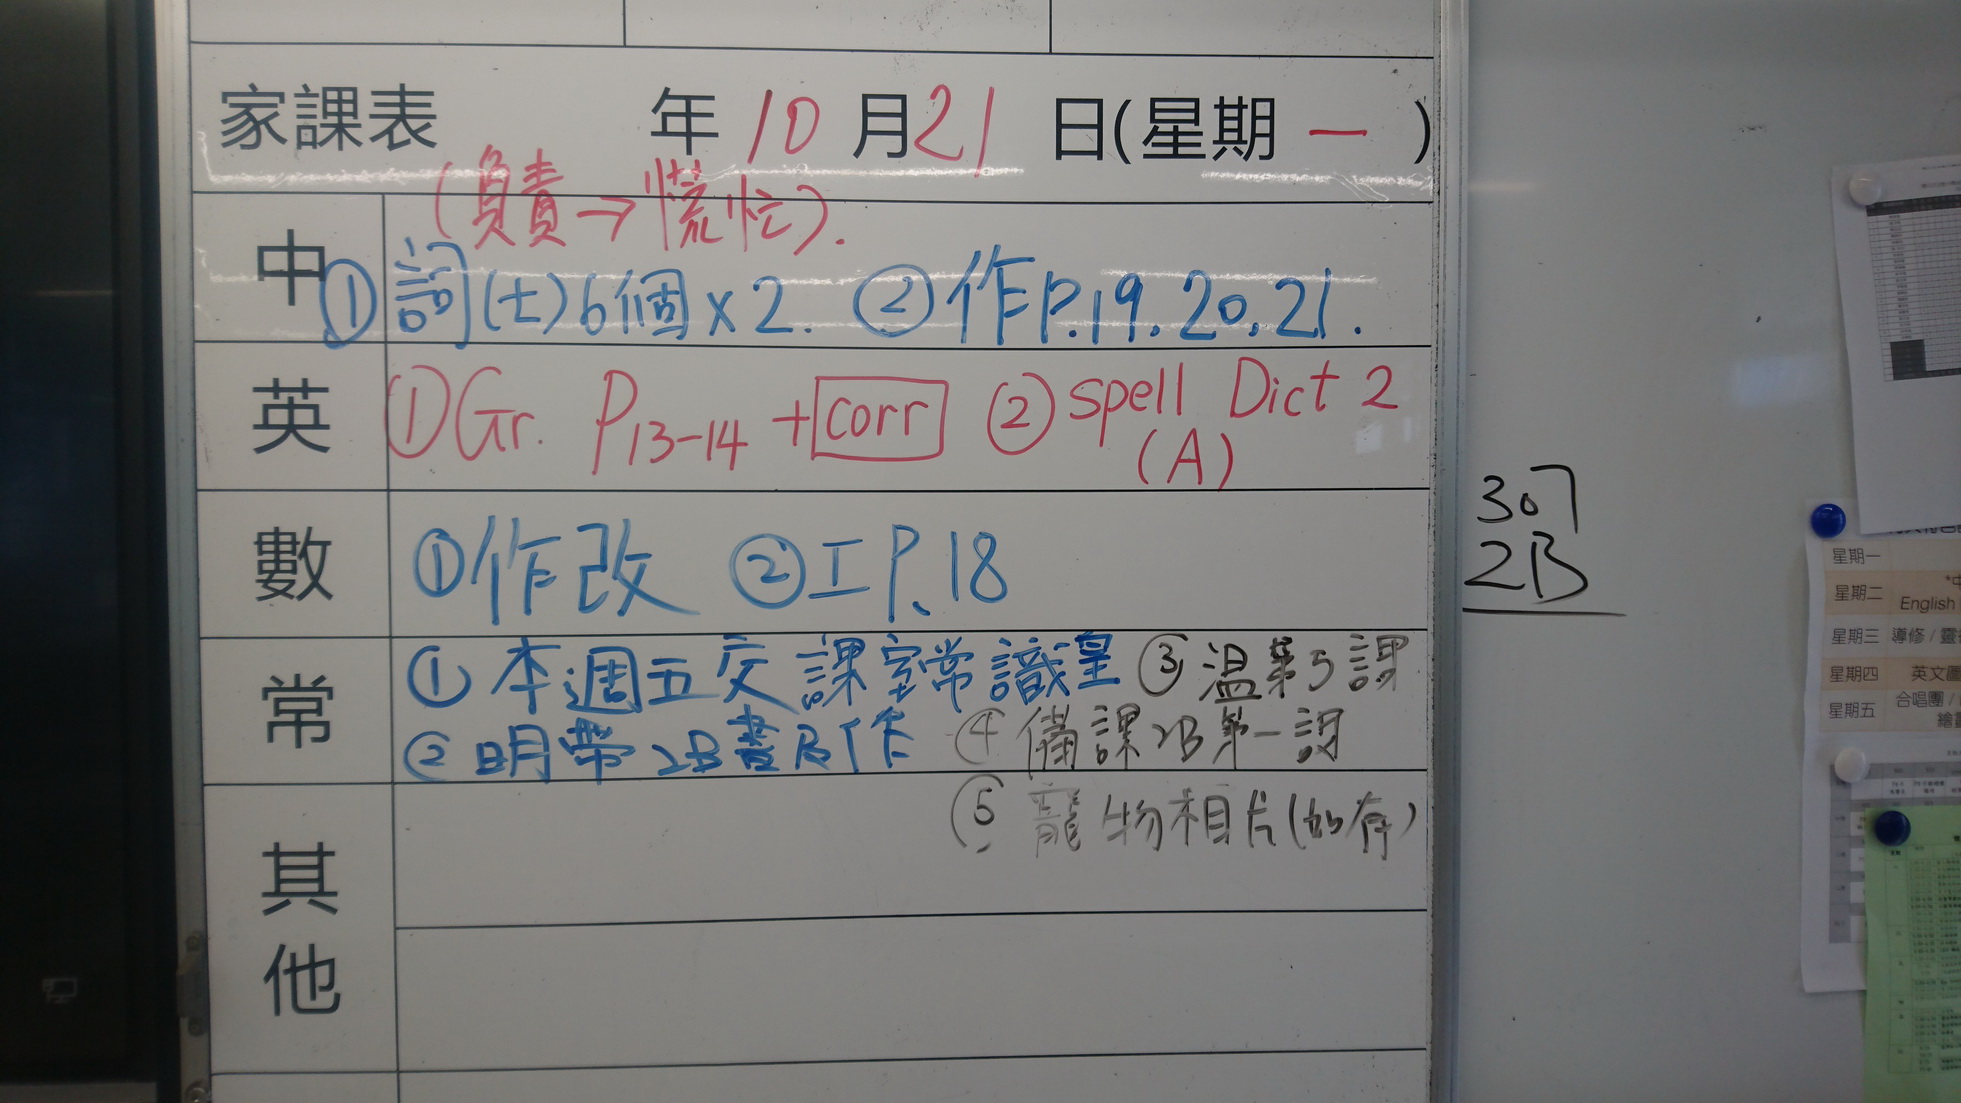 家課表 年 10 月 21 日(星期 一 )
(負責→慌忙).
中 ①詞(七)6個x2. ②作P.19.20.21.
英 ①Gr. P13-14 +corr ②spell Dict 2
(A)
數 ①作改 ②工P.18
常 ①本週五交課室常識皇 ③溫第5課
②明帶2B書及作 ④備課2B第一課
⑤寵物相片(如有)
其他
307
2B
星期一
星期二
English
星期三 導修 /
星期四 英文
星期五 合唱團 /